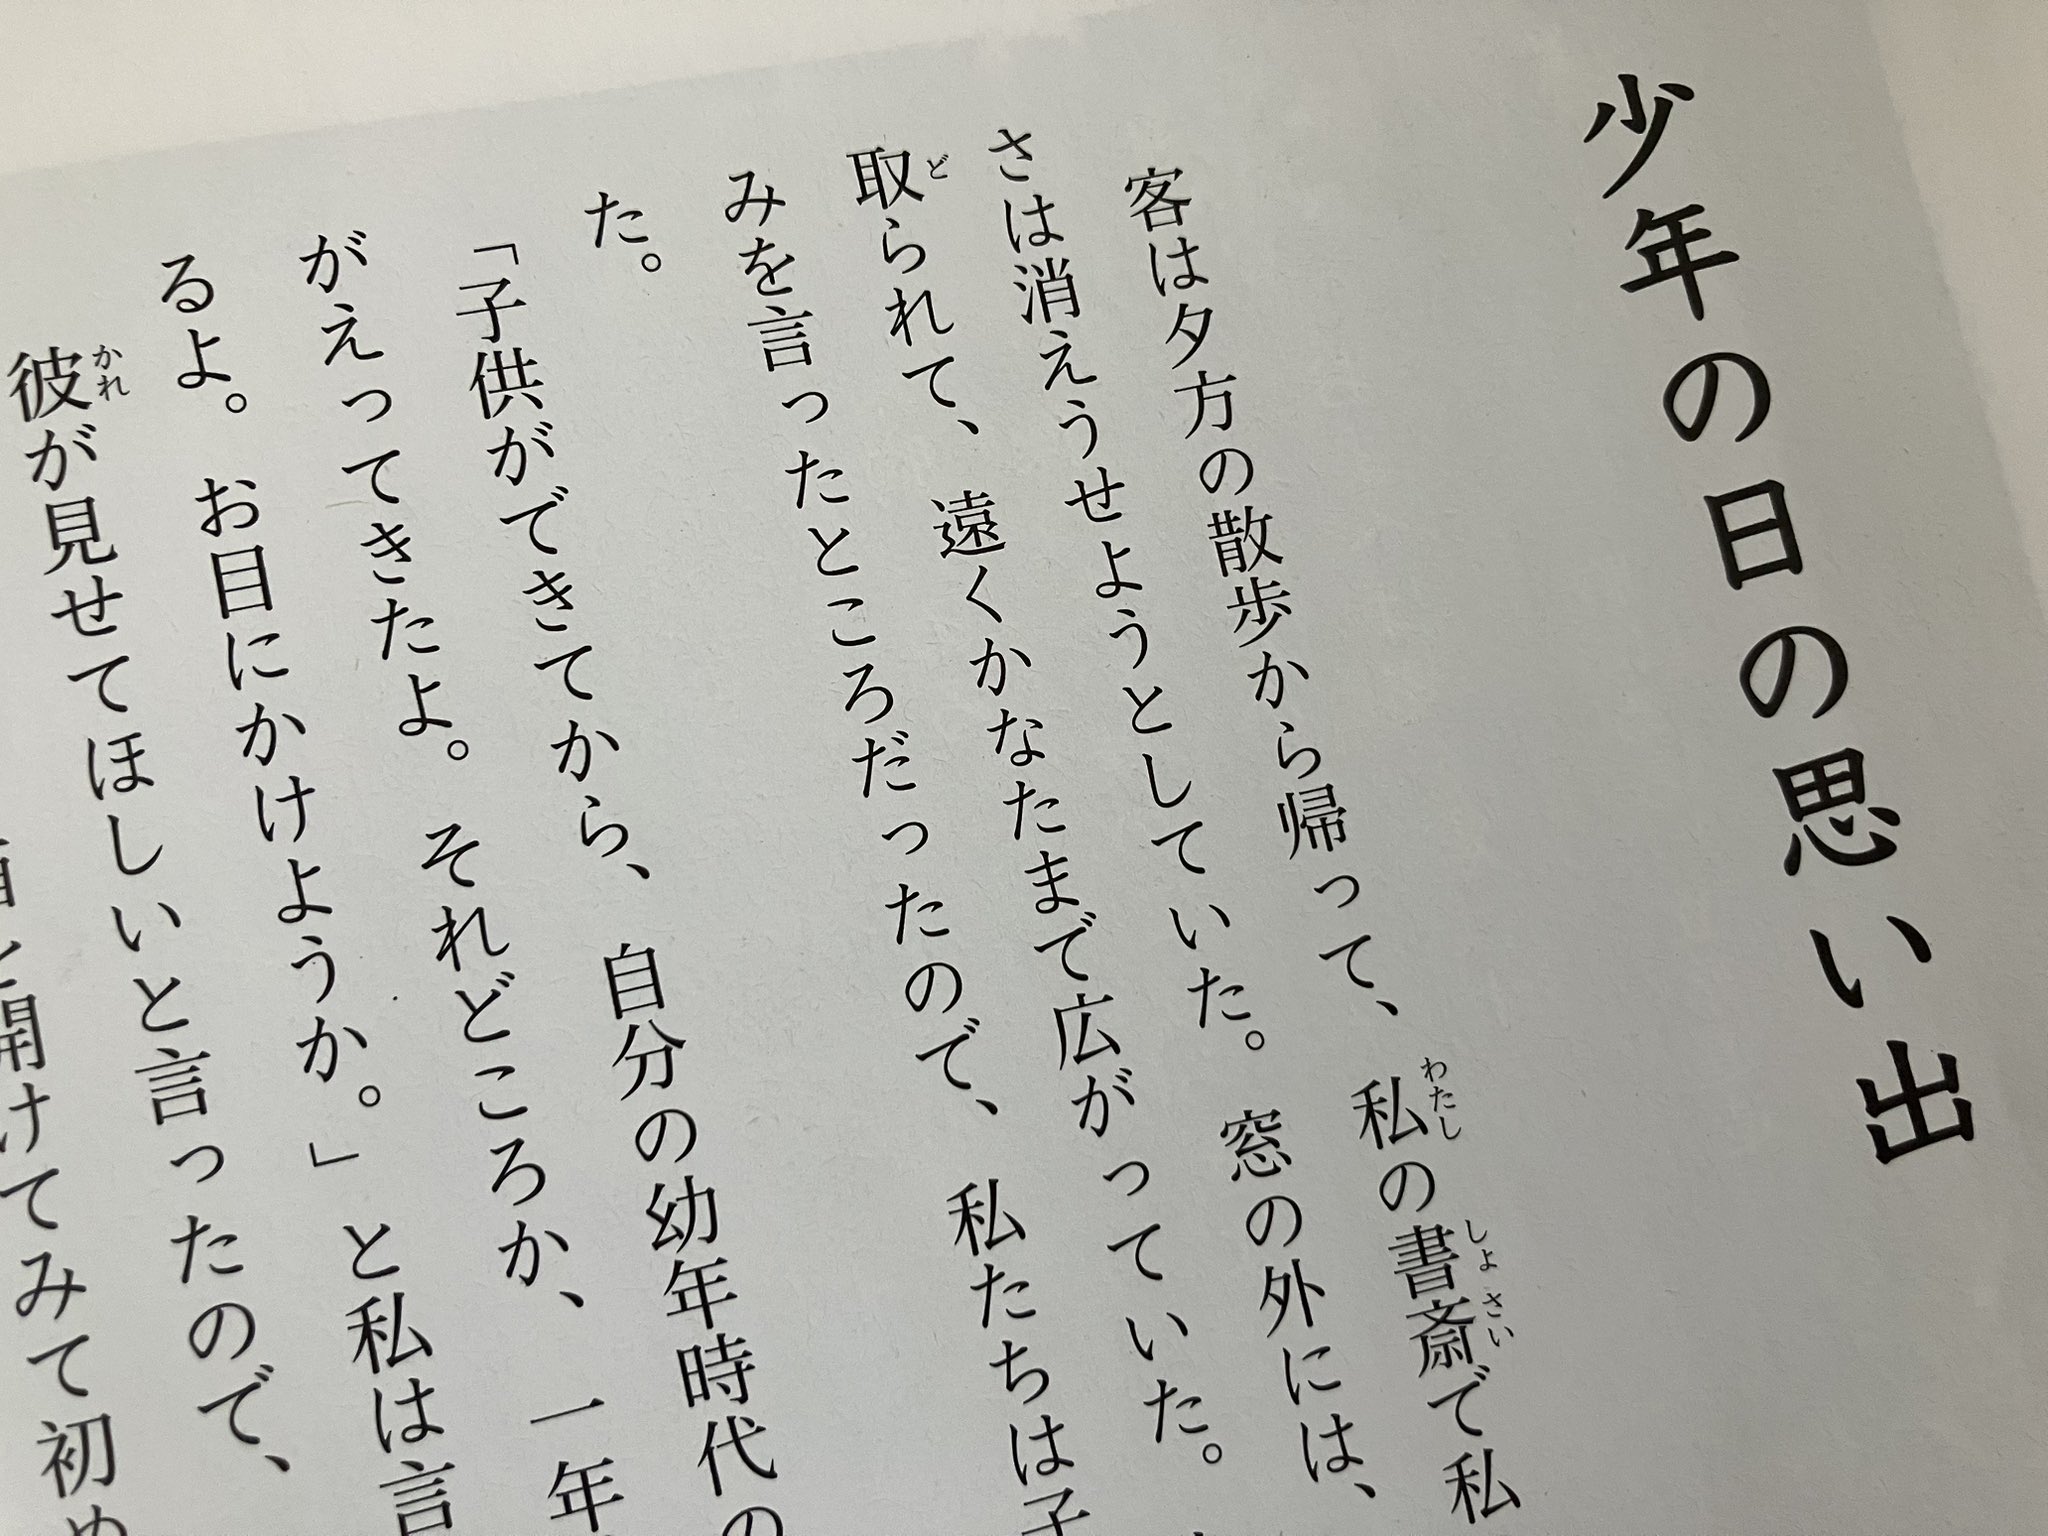 少年の日の思い出
客は夕方の散歩から帰って、私の書斎で私
わたし
しょさい
さは消えうせようとしていた。窓の外には、
取られて、遠くかなたまで広がっていた。
ど
みを言ったところだったので、私たちは子
た。
「子供ができてから、自分の幼年時代の
がえってきたよ。それどころか、一年
るよ。お目にかけようか。」と私は言
彼が見せてほしいと言ったので、
かれ
開けてみて初め